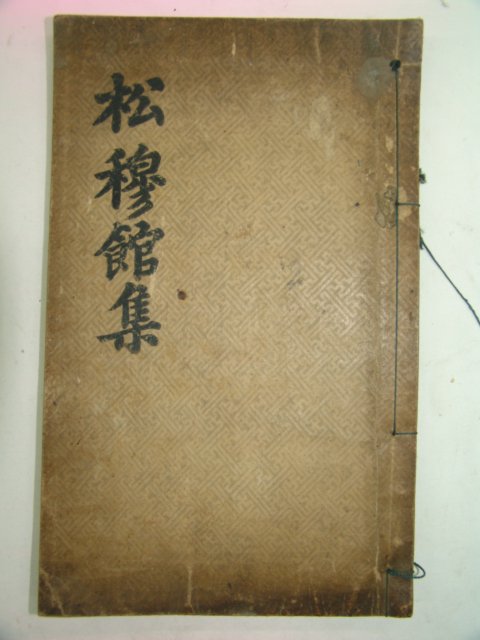 松穆館集